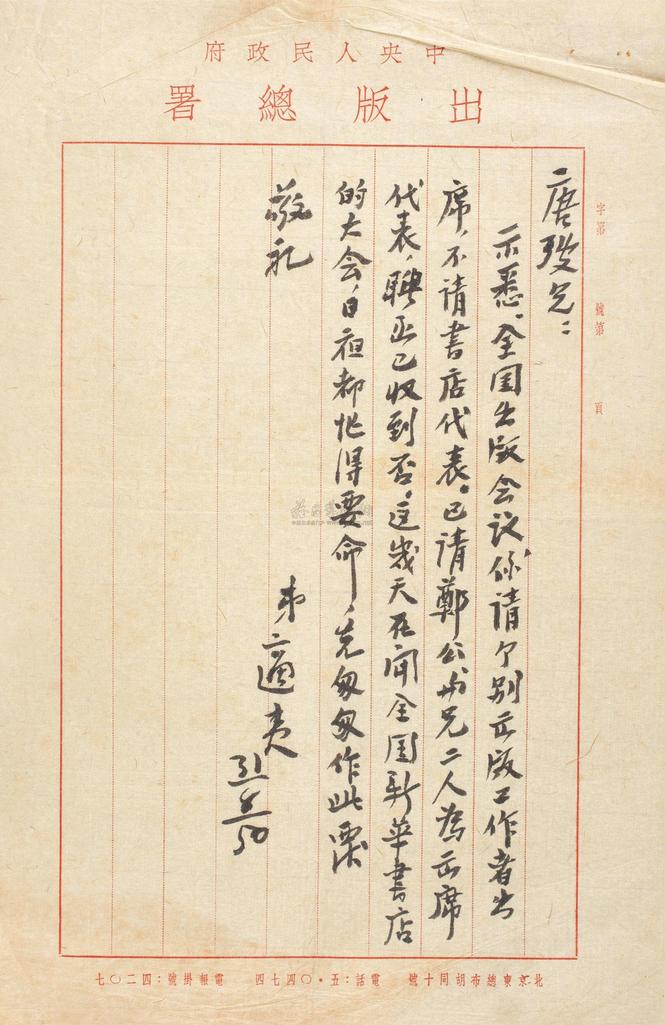 中央人民政府
出版總署
字第 號第 頁
唐弢兄：
示悉。全国出版会议係请个别出版工作者出
席，不请書店代表。已请鄭公与兄二人為出席
代表，聘已收到否，这幾天在開全国新華書店
的大会，日夜都忙得要命，先匆匆作此
敬礼
弟適夷
31/8/50
北京東總布胡同十號 電話：五·〇四七四 電報掛號：四二〇七